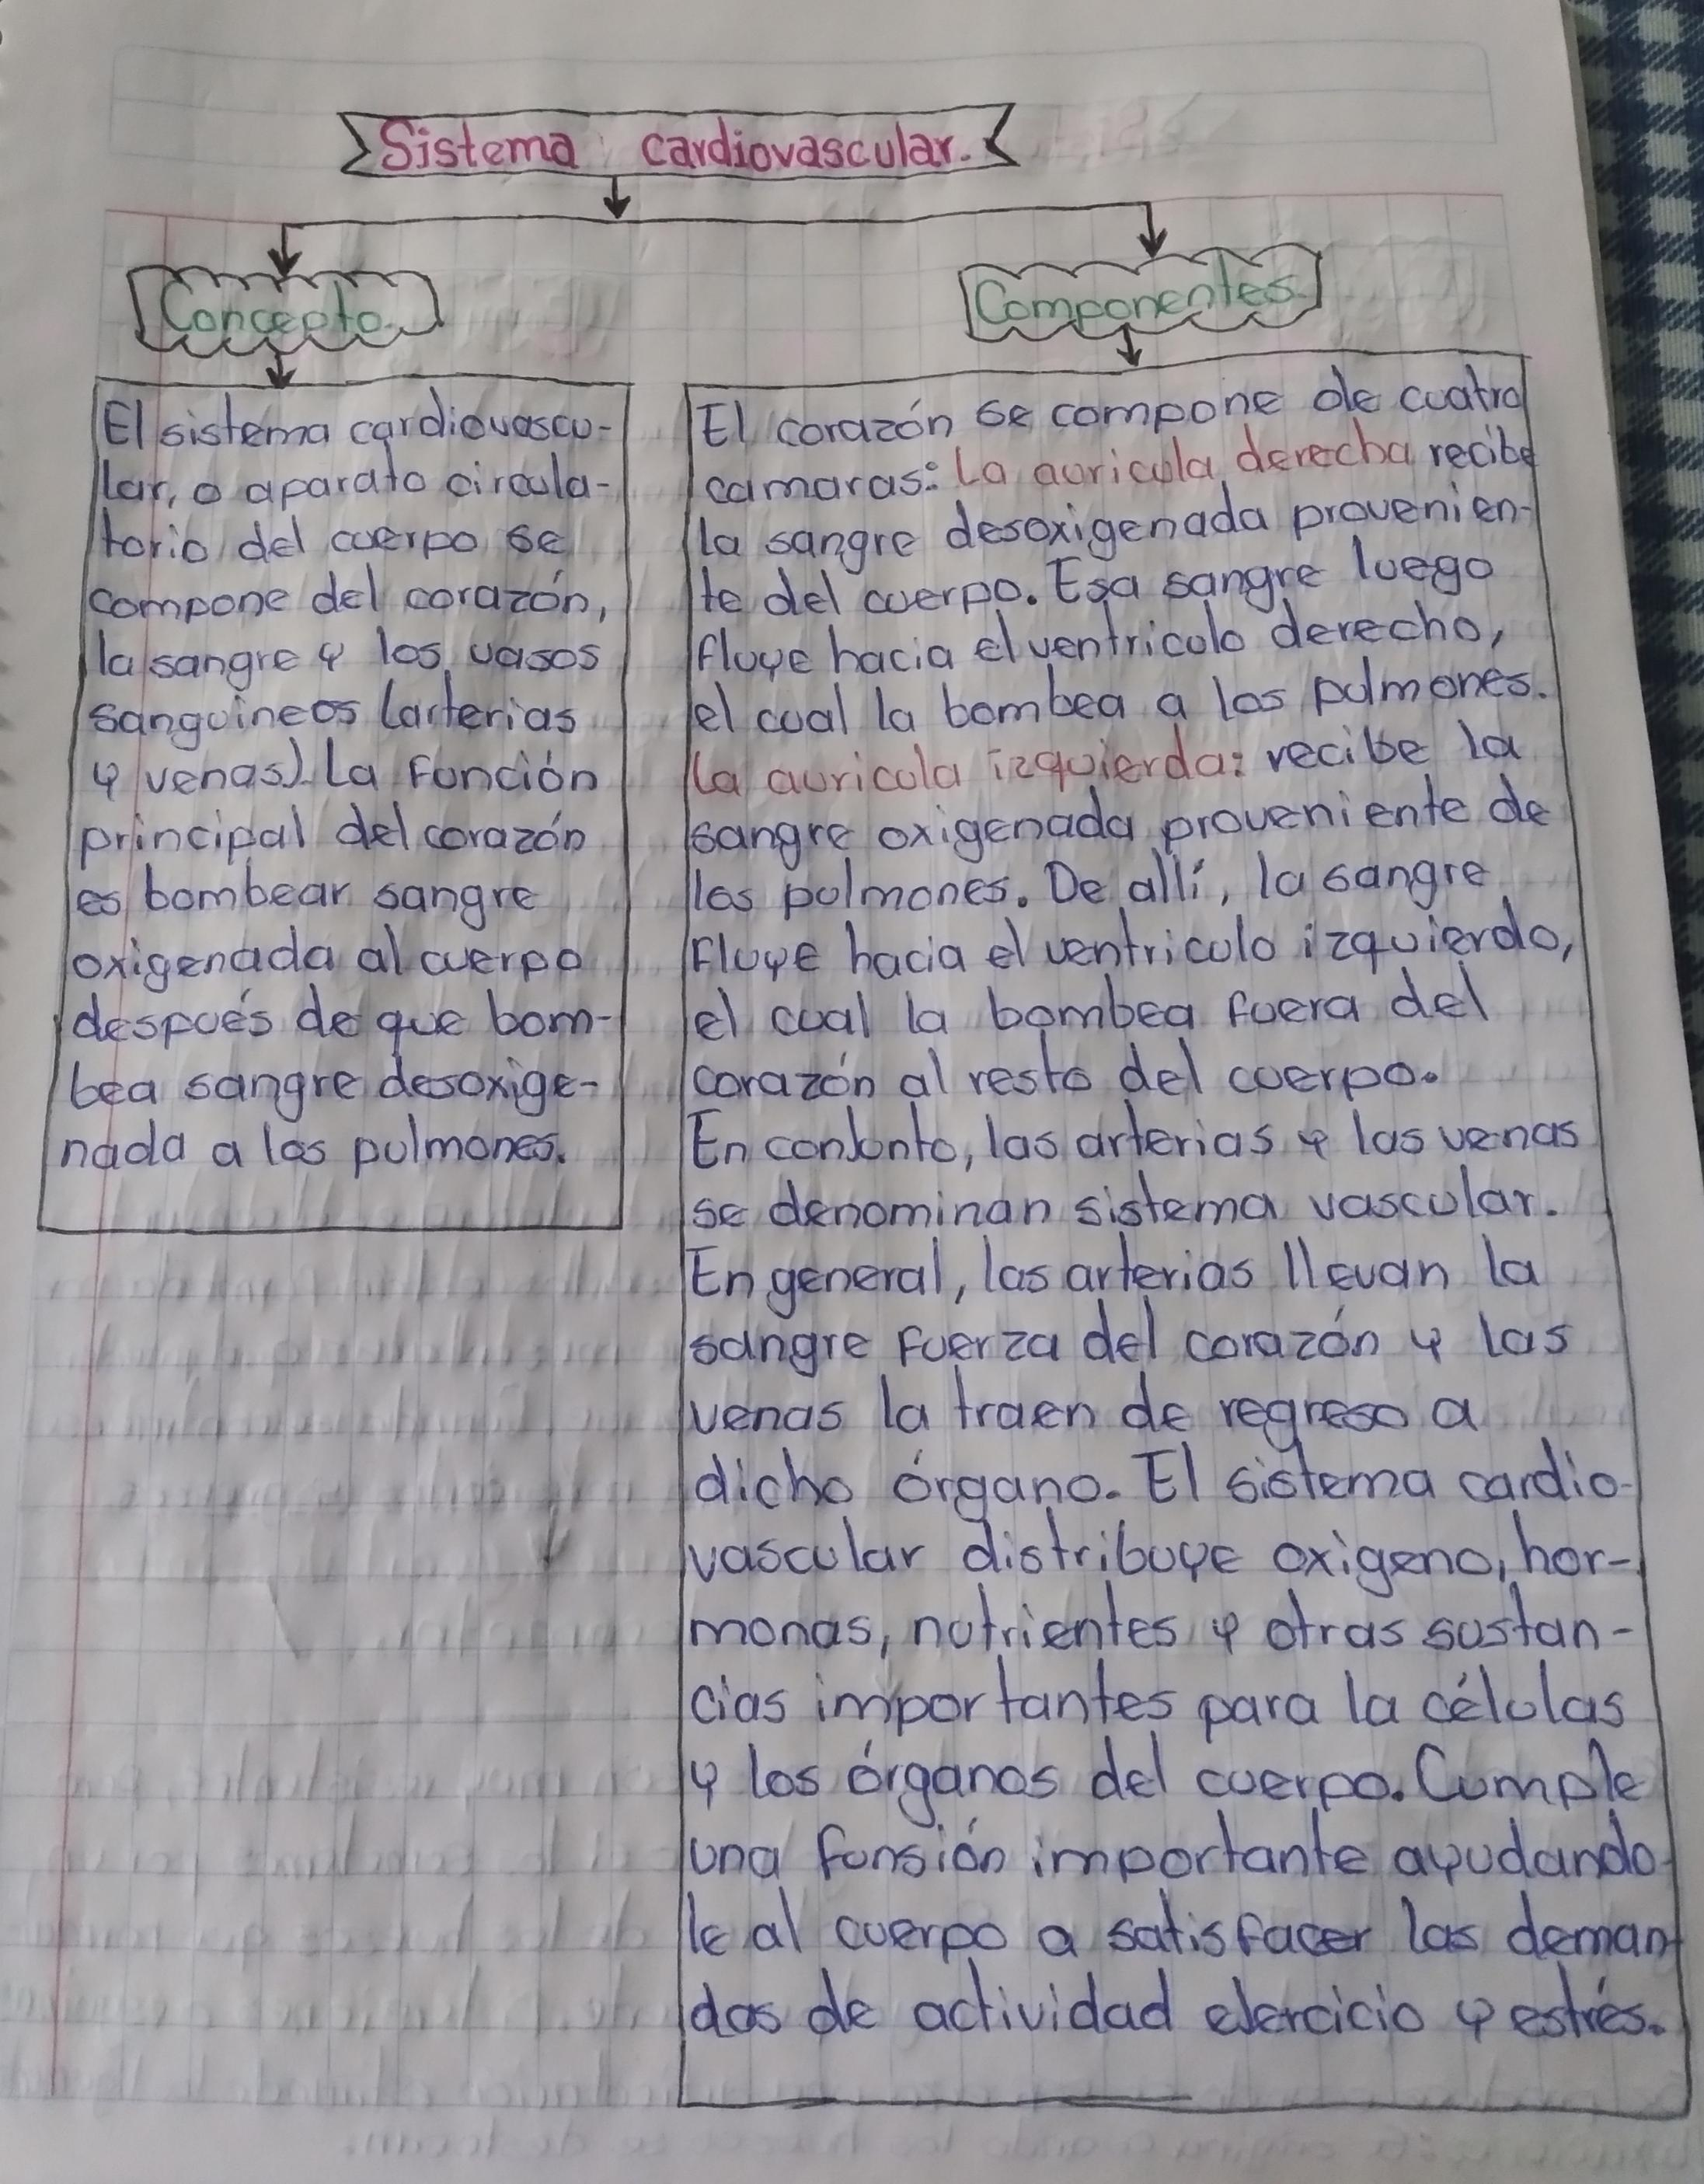 Sistema cardiovascular.
Concepto.
El sistema cardiovascu-
lar, o aparato circula-
torio del cuerpo se
compone del corazón,
la sangre y los vasos
sanguineos (arterias
y venas). La Función
principal del corazón
es bombear sangre
oxigenada al cuerpo
después de que bom-
bea sangre desoxige-
nada a los pulmones.
Componentes.
El corazón se compone de cuatro
camaras: La auricula derecha recibe
la sangre desoxigenada provenien-
te del cuerpo. Esa sangre luego
fluye hacia el ventriculo derecho,
el cual la bombea a los pulmones.
La auricula izquierda: recibe la
sangre oxigenada proveniente de
los pulmones. De allí, la sangre
Fluye hacia el ventriculo izquierdo,
el cual la bombea fuera del
corazón al resto del cuerpo.
En conjunto, las arterias y las venas
se denominan sistema vascular.
En general, las arterias llevan la
sangre Fuerza del corazón y las
venas la traen de regreso a
dicho órgano. El sistema cardio-
vascular distribuye oxigeno, hor-
monas, nutrientes y otras sustan-
cias importantes para la células
y los órganos del cuerpo. Cumple
una funsión importante ayudando-
le al cuerpo a satisfacer las deman
das de actividad ejercicio y estrés.